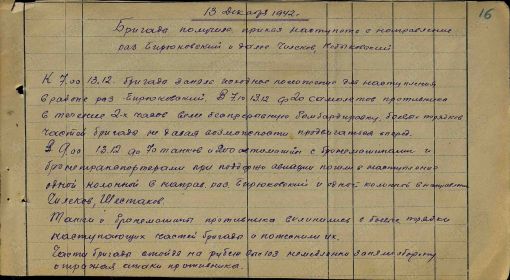 16
13 декабря 1942.
Бригада получила приказ наступать в направлении
раз Бирюковский и далее Чилеков,
К 7.00 13.12. бригада заняла исходное положение для наступления
в районе раз. Бирюковский. В 7.10 13.12 до 20 самолетов противника
в течение 2-х часов вели беспрерывную бомбардировку боевых порядков
частей бригады не давая возможности продвигаться вперед.
В 9.00 13.12 до 70 танков и 200 автомашин с бронемашинами и
бронетранспортерами при поддержке авиации пошли в наступление
одной колонной в направ. раз. Бирюковский и одной колонной в направлен
Чилеков, Шестаков.
Танки и бронемашины противника вклинились в боевые порядки
наступающих частей бригады и потеснили их.
Части бригады отойдя на рубеж свх немедленно заняли оборону
отражая атаки противника.